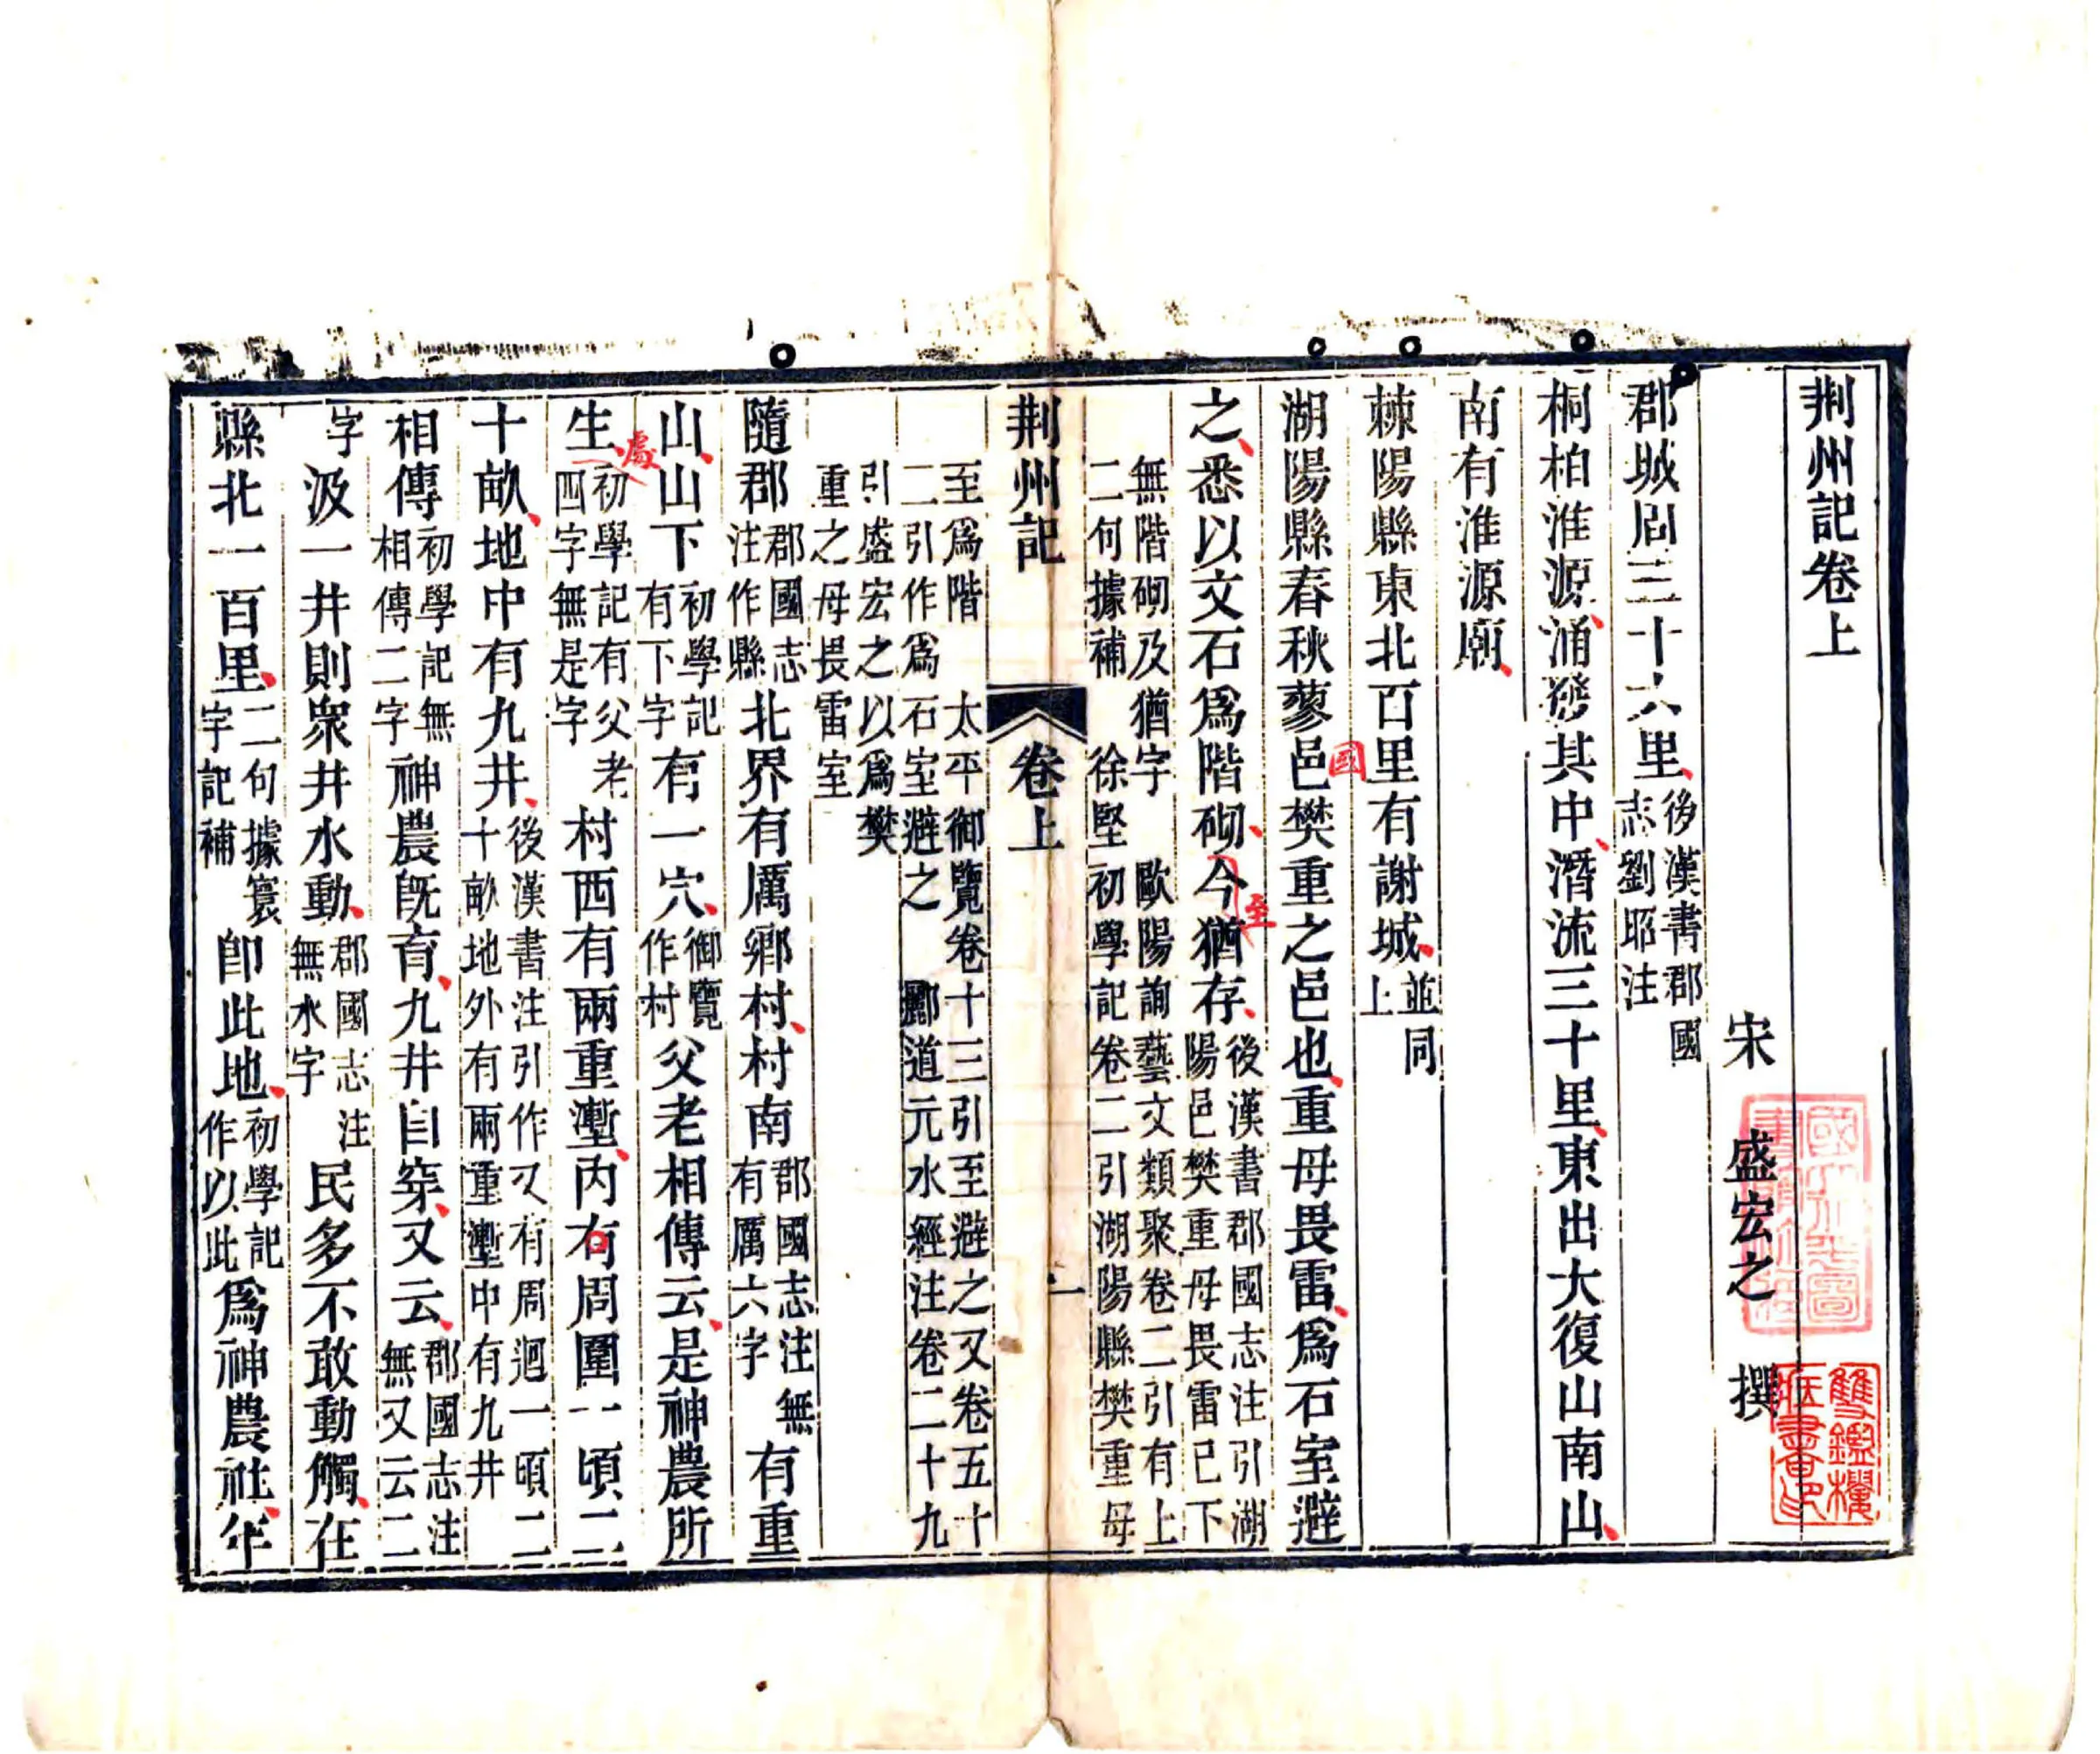 荆州記卷上
宋 盛宏之 撰
郡城周三十六里後漢書郡國志劉昭注
桐柏淮源涌發其中潛流三十里東出大復山南山
南有淮源廟
棘陽縣東北百里有謝城並同上
國
湖陽縣春秋蓼邑樊重之邑也重母畏雷爲石室避
之悉以文石爲階砌今猶存後漢書郡國志注引湖陽邑樊重母畏雷已下
至
無階砌及猶字 歐陽詢藝文類聚卷二引有上二句據補 徐堅初學記卷二引湖陽縣樊重母
荆州記 卷上 一
至爲階 太平御覽卷十三引至避之又卷五十二引作爲石室避之 酈道元水經注卷二十九
引盛宏之以爲樊重之母畏雷室
隨郡郡國志注作縣北界有厲鄉村村南郡國志注無有厲六字有重
山山下初學記有下字有一穴御覽作村父老相傳云是神農所
處
生初學記有父老四字無是字村西有兩重壍內有周圍一頃二
十畝地中有九井後漢書注引作又有周迴一頃二十畝地外有兩重壍中有九井
相傳初學記無相傳二字神農旣育九井自穿又云郡國志注無又云二
字汲一井則眾井水動郡國志注無水字民多不敢動觸在
縣北一百里二句據寰字記補卽此地初學記作以此爲神農社年
雙鑑樓藏書印